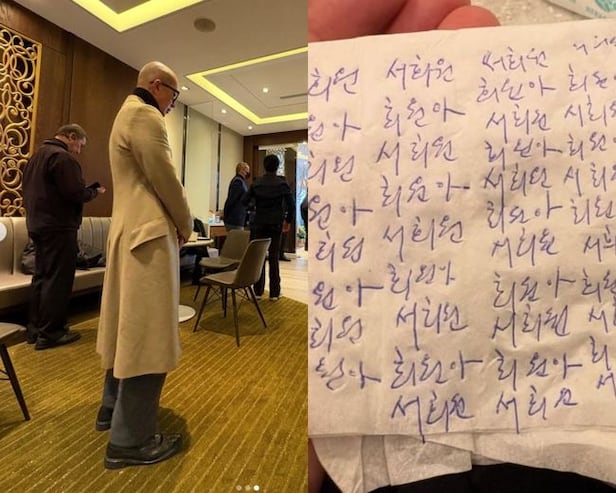 희원 서희원 서희원
원아 희원아 희원아 희원
희원 서희원 서희원 서희원
원아 희원아 희원아 희원
희원 서희원 서희원 서희원
원아 희원아 희원아 희원
희원 서희원 서희원 서
원아 희원아 희원아 희원
서희원 서희원 서